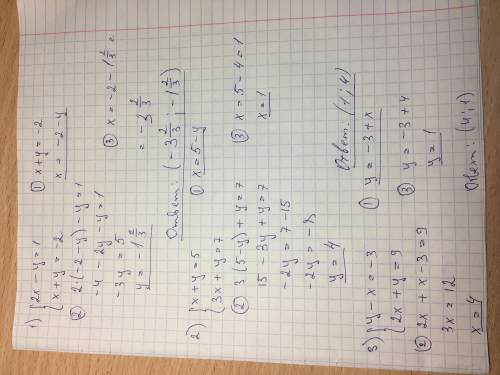 1) { 2x - y = 1
x + y = -2
① x + y = -2
x = -2 - y
② 2(-2-y) - y = 1
-4 - 2y - y = 1
-3y = 5
y = -1 2/3
③ x = -2 - 1 2/3 =
= -3 2/3
Ответ: (-3 2/3; -1 2/3)
2) { x + y = 5
3x + y = 7
① x = 5 - y
② 3(5-y) + y = 7
15 - 3y + y = 7
-2y = 7 - 15
-2y = -8
y = 4
③ x = 5 - 4 = 1
x = 1
Ответ: (1; 4)
3) { y - x = -3
2x + y = 9
① y = -3 + x
② 2x + x - 3 = 9
3x = 12
x = 4
③ y = -3 + 4
y = 1
Ответ: (4; 1)